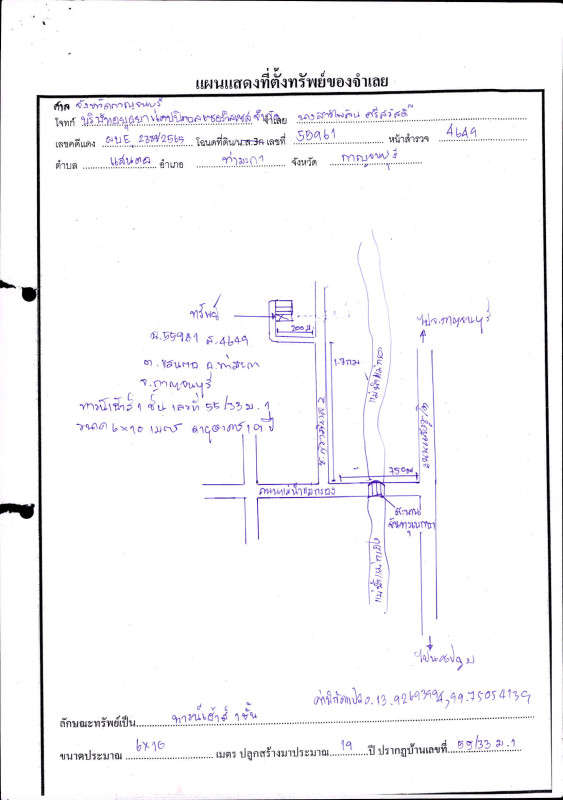 แผนแสดงที่ตั้งทรัพย์ของจำเลย
ศาล จังหวัดกาญจนบุรี
โจทก์ บริษัท จำเลย นาง
เลขคดีแดง ผบE 2389/2565 โฉนดที่ดิน/น.ส.3ก เลขที่ 55961 หน้าสำรวจ 4649
ตำบล แสนตอ อำเภอ ท่ามะกา จังหวัด กาญจนบุรี
ทรัพย์
200 ม
ไป จ.กาญจนบุรี
ฉ.55981 ส.4649
ต.แสนตอ อ.ท่ามะกา
จ.กาญจนบุรี
1.7 กม
แม่น้ำแม่กลอง
ทาวน์เฮ้าส์ 1 ชั้น เลขที่ 55/33 ม.1
ขนาด 6x10 เมตร อายุอาคาร 19 ปี
750 ม
ถนนแม่น้ำแม่กลอง
สะพาน
แม่น้ำแม่กลอง
ไปนครปฐม
ค่าพิกัดแปลง 13.92693994, 99.75054139
ลักษณะทรัพย์เป็น ทาวน์เฮ้าส์ 1 ชั้น
ขนาดประมาณ 6x10 เมตร ปลูกสร้างมาประมาณ 19 ปี ปรากฏบ้านเลขที่ 55/33 ม.1